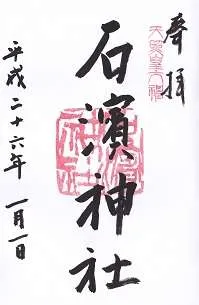 奉拝
天照皇大神
石濱神社
平成二十六年 一月一日